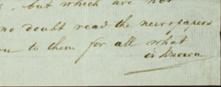 - but which are not
no doubt read the newspapers
to them for all what
is known